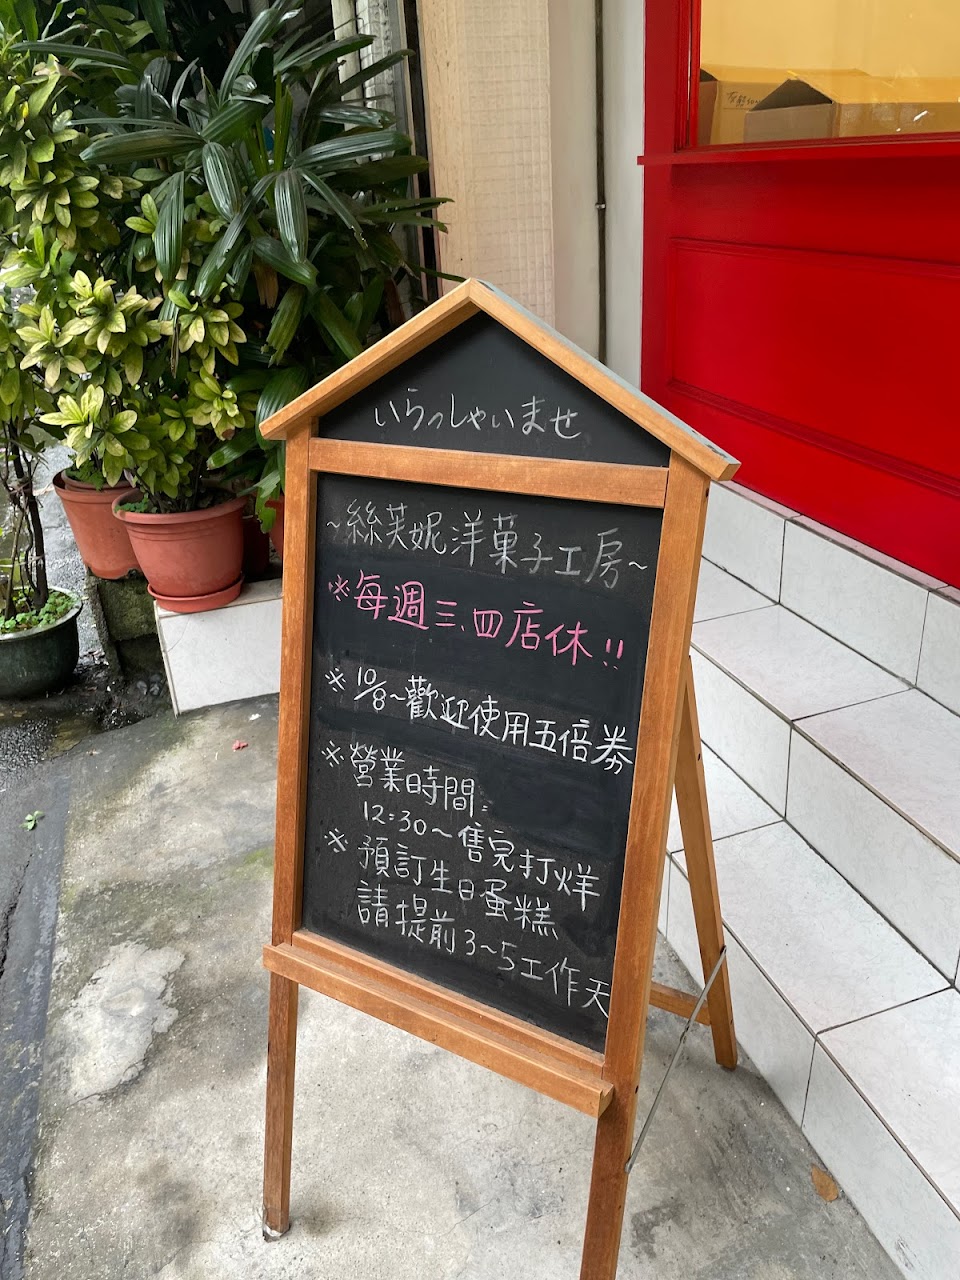 いらっしゃいませ
~絲芙妮洋菓子工房~
※每週三、四店休!!
※10/8~歡迎使用五倍券
※營業時間:
12:30~售完打烊
※預訂生日蛋糕
請提前3~5工作天